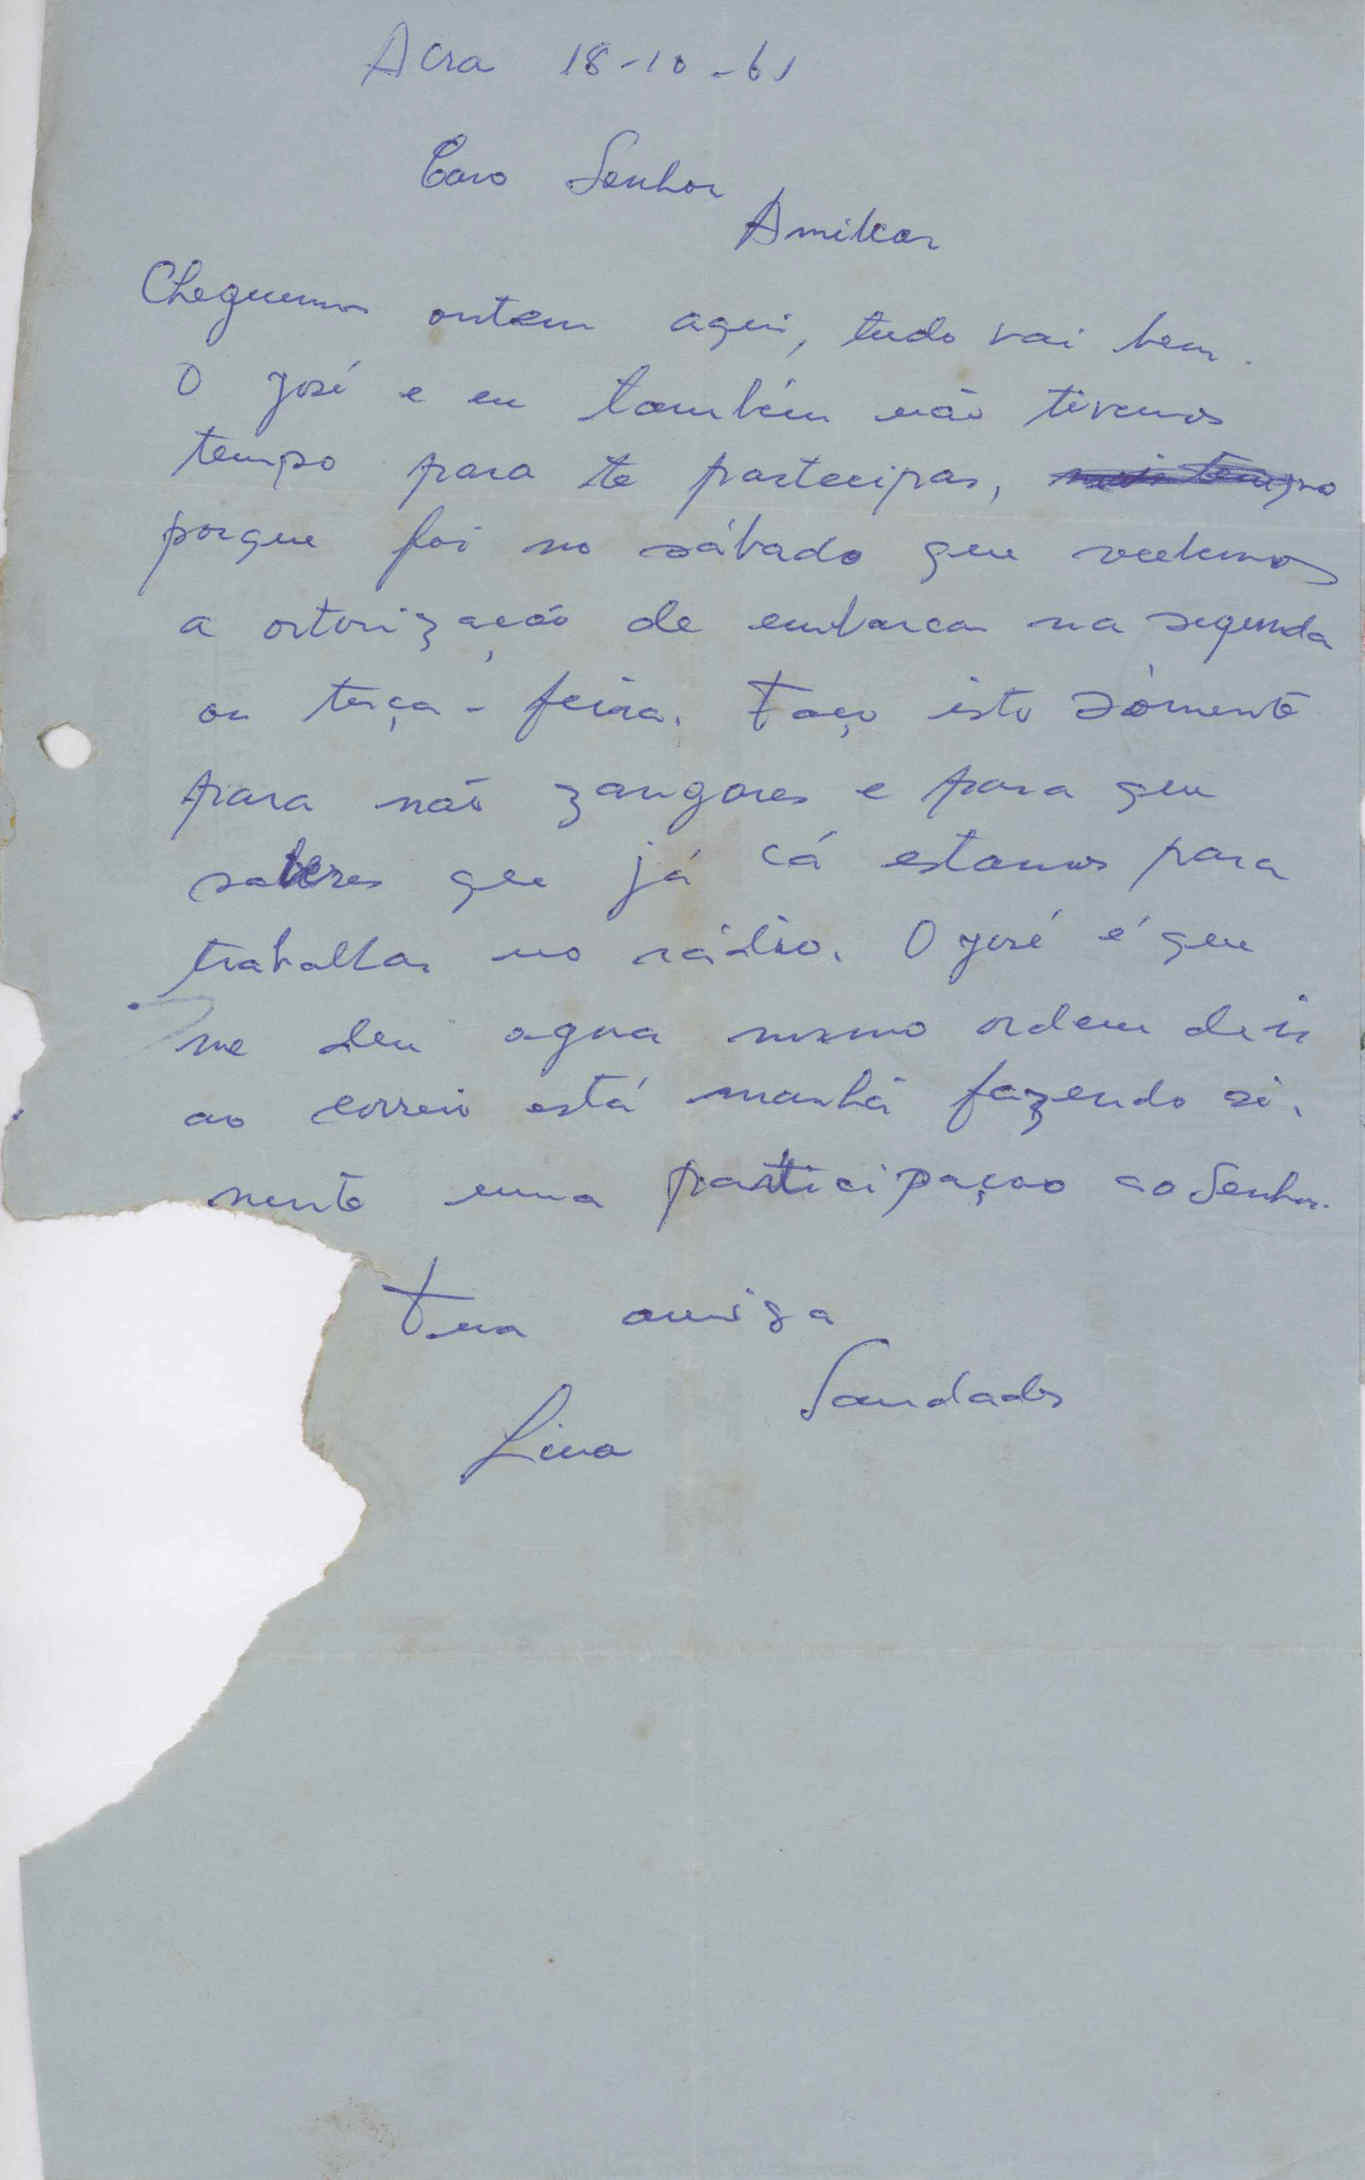 Acra 18-10-61
Caro Senhor
Amilcar
Cheguemos ontem aqui, tudo vai bem.
O José e eu também não tivemos
tempo para te partecipar,
porque foi no sábado que
a otorização de embarcar na segunda
ou terça-feira. Faço isto sòmente
para não zangares e para que
saberes que já cá estamos para
trabalhar no rádio. O José é que
me deu agora mesmo ordem de ir
ao correio está manhã fazendo sò-
mente uma participaçao ao Senhor.
Tua amiga
Saudades
Lina